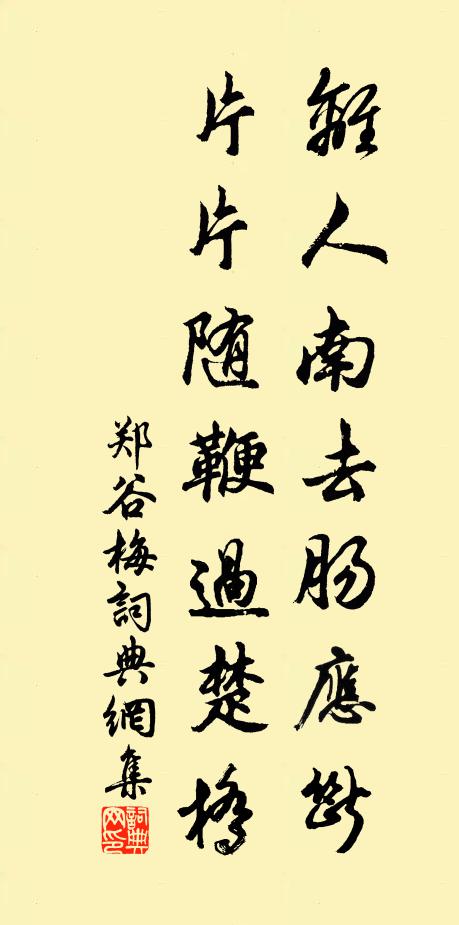 離人南去肠應斷
片片随鞭過楚橋
郑谷梅詞典網集
詞典网印